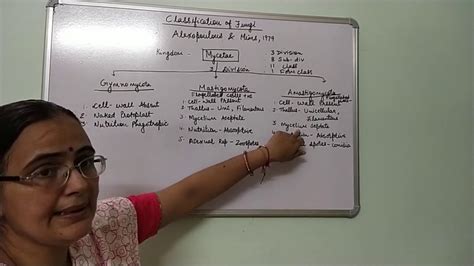 Classification of Fungi
Alexopoulos & Mims, 1979
Kingdom - Mycetae
3 Division
8 Sub-div
11 Class
1 Form class
3 Division
Gymnomycota
1. Cell-wall Absent
2. Naked Protoplast
3. Nutrition Phagotrophic
Mastigomycota
Flagellated cells +nt
1. Cell-Wall Present
2. Thallus - Uni, Filamentous
3. Mycelium Aseptate
4. Nutrition - Absorptive
5. Asexual Rep - Zoospores
Amastigomycota
1. Cell-Wall Present
2. Thallus - Unicellular,
Filamentous
3. Mycelium Septate
Absorptive
Spores - conidia